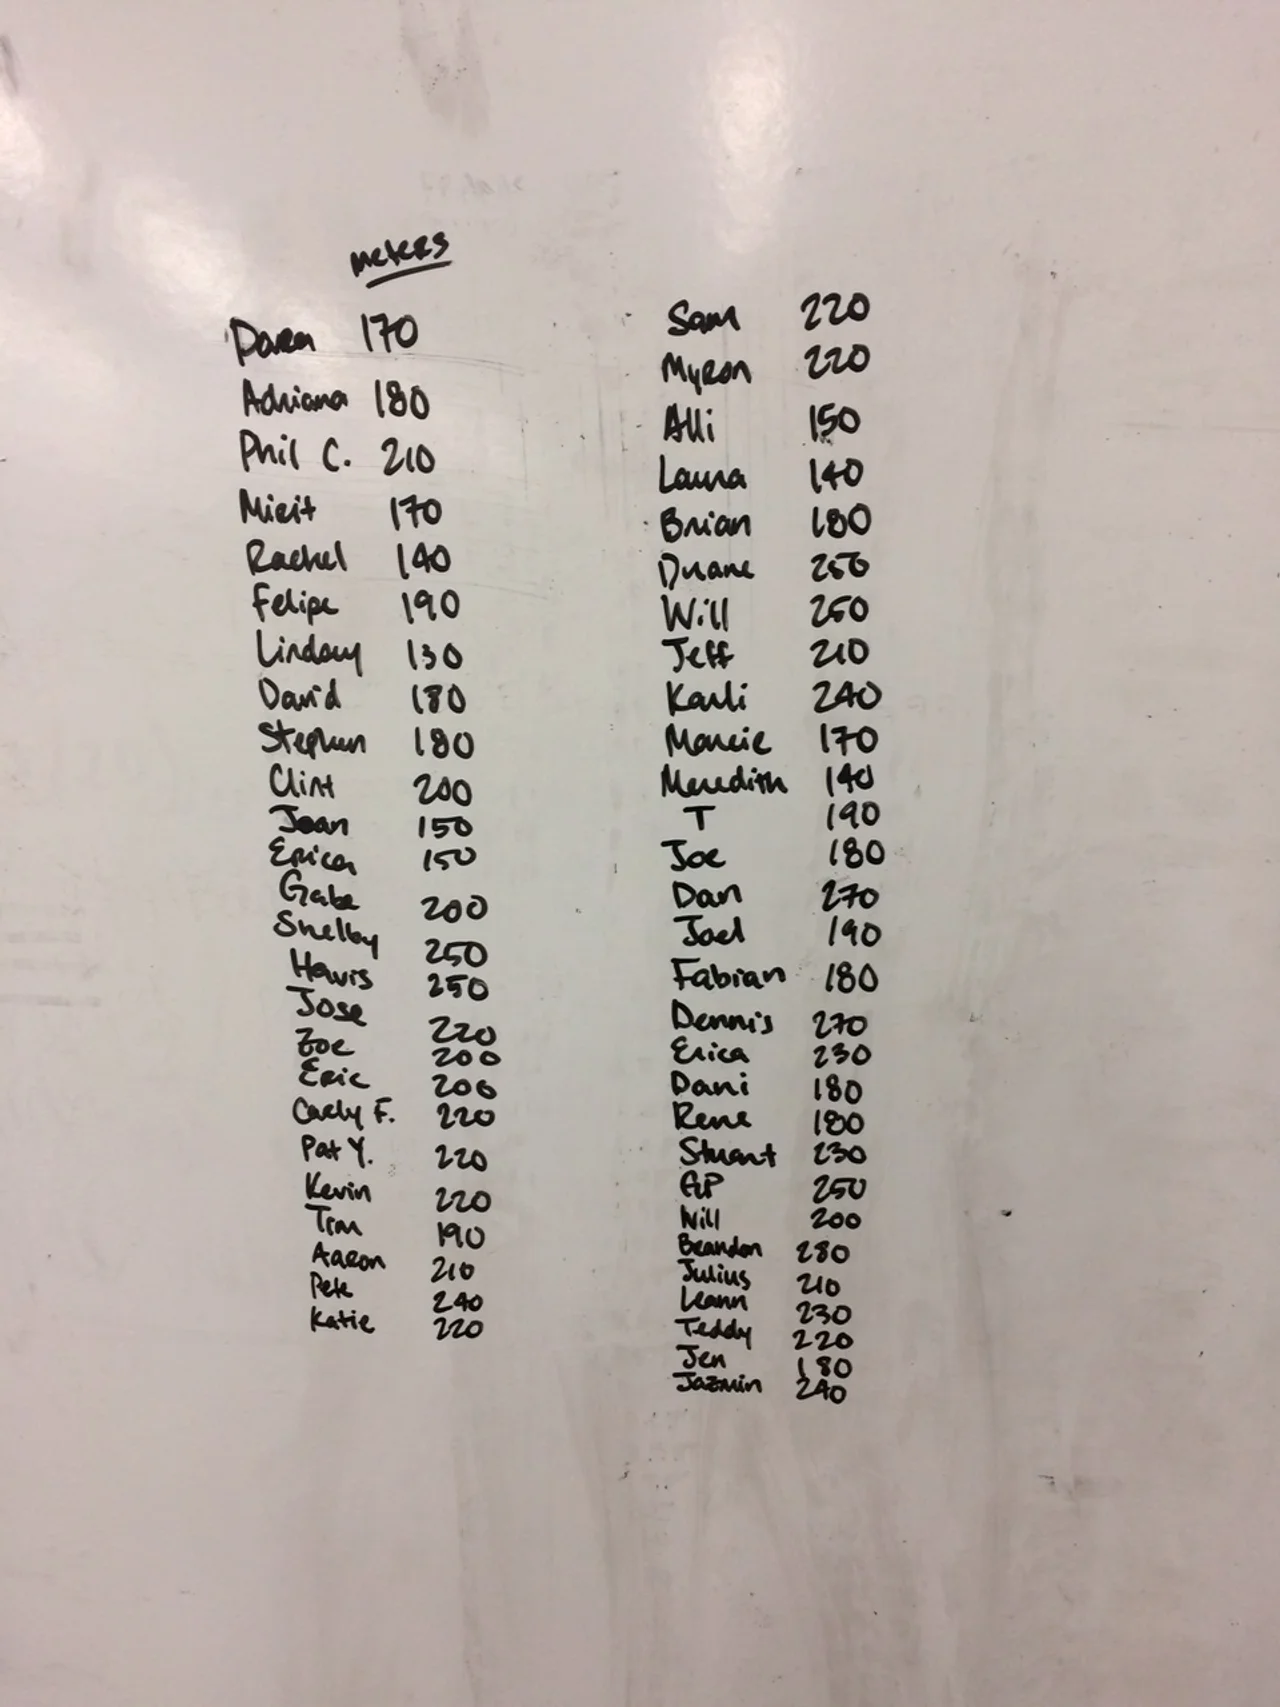 meters
Daren 170
Adriana 180
Phil C. 210
Mirit 170
Rachel 140
Felipe 190
Lindsay 130
David 180
Stephen 180
Clint 200
Joan 150
Erica 150
Gabe 200
Shelby 250
Harris 250
Jose 220
Zoe 200
Eric 200
Carly F. 220
Pat Y. 220
Kevin 220
Tim 190
Aaron 210
Pete 240
Katie 220
Sam 220
Myron 220
Alli 150
Laura 140
Brian 180
Duane 250
Will 250
Jeff 210
Karli 240
Marcie 170
Meredith 140
T 190
Joe 180
Dan 270
Joel 190
Fabian 180
Dennis 270
Erica 230
Dani 180
Rene 180
Stuart 230
250
Will 200
Brandon 280
Julius 210
Leann 230
Teddy 220
Jen 180
Jazmin 240